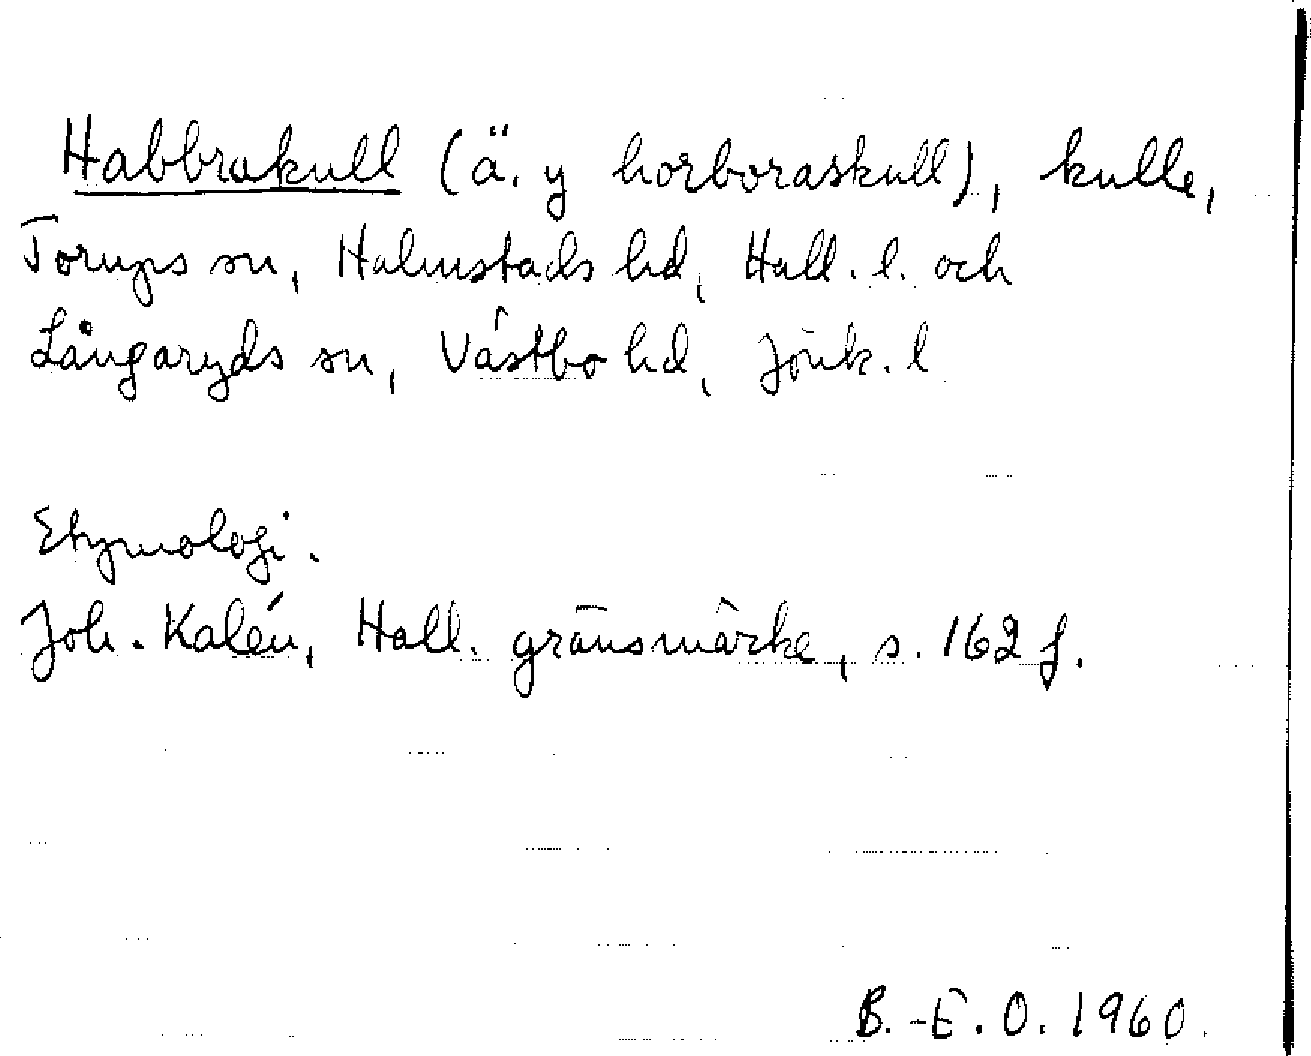 Habbrakull (ä. y horboraskull), kulle,
Torups sn, Halmstads hd, Hall. l. och
Långaryds sn, Västbo hd, Jönk. l
Etymologi.
Joh. Kalén, Hall. gränsmärke, s. 162 f.
B.-E. O. 1960.